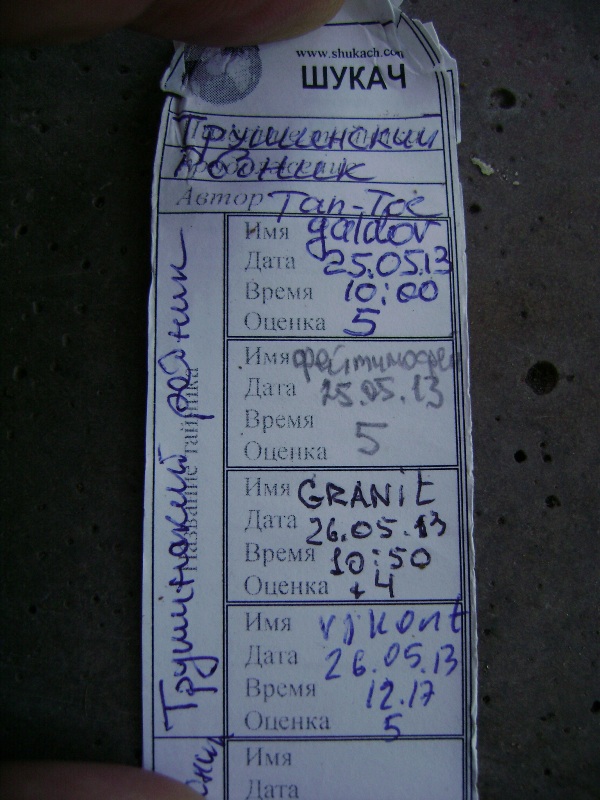 www.shukach.com
ШУКАЧ
Трушенский
Родник
Автор Тап-Тос
Имя galdor
Дата 25.05.13
Время 10:00
Оценка 5
Имя фейтимофей
Дата 25.05.13
Время
Оценка 5
Имя GRANIt
Дата 26.05.13
Время 10:50
Оценка +4
Имя vjkont
Дата 26.05.13
Время 12.17
Оценка 5
Имя
Дата
Название тайника
родник